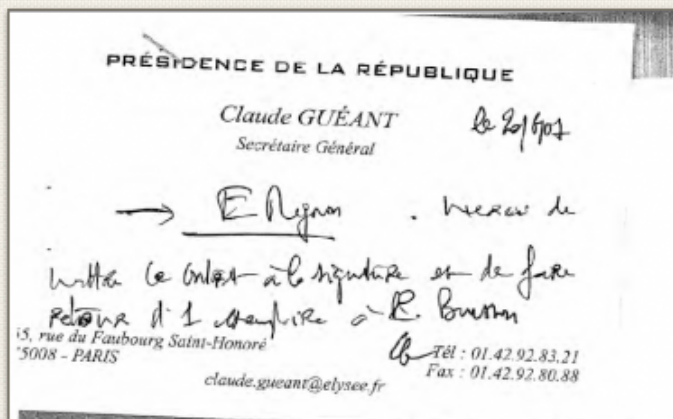 PRÉSIDENCE DE LA RÉPUBLIQUE
Claude GUÉANT
Secrétaire Général
le
→ E Mignon . merci de
mettre le contrat à la signature et de faire
retour d'1 exemplaire à P. Buisson
55, rue du Faubourg Saint-Honoré
75008 - PARIS
Tél : 01.42.92.83.21
Fax : 01.42.92.80.88
claude.gueant@elysee.fr